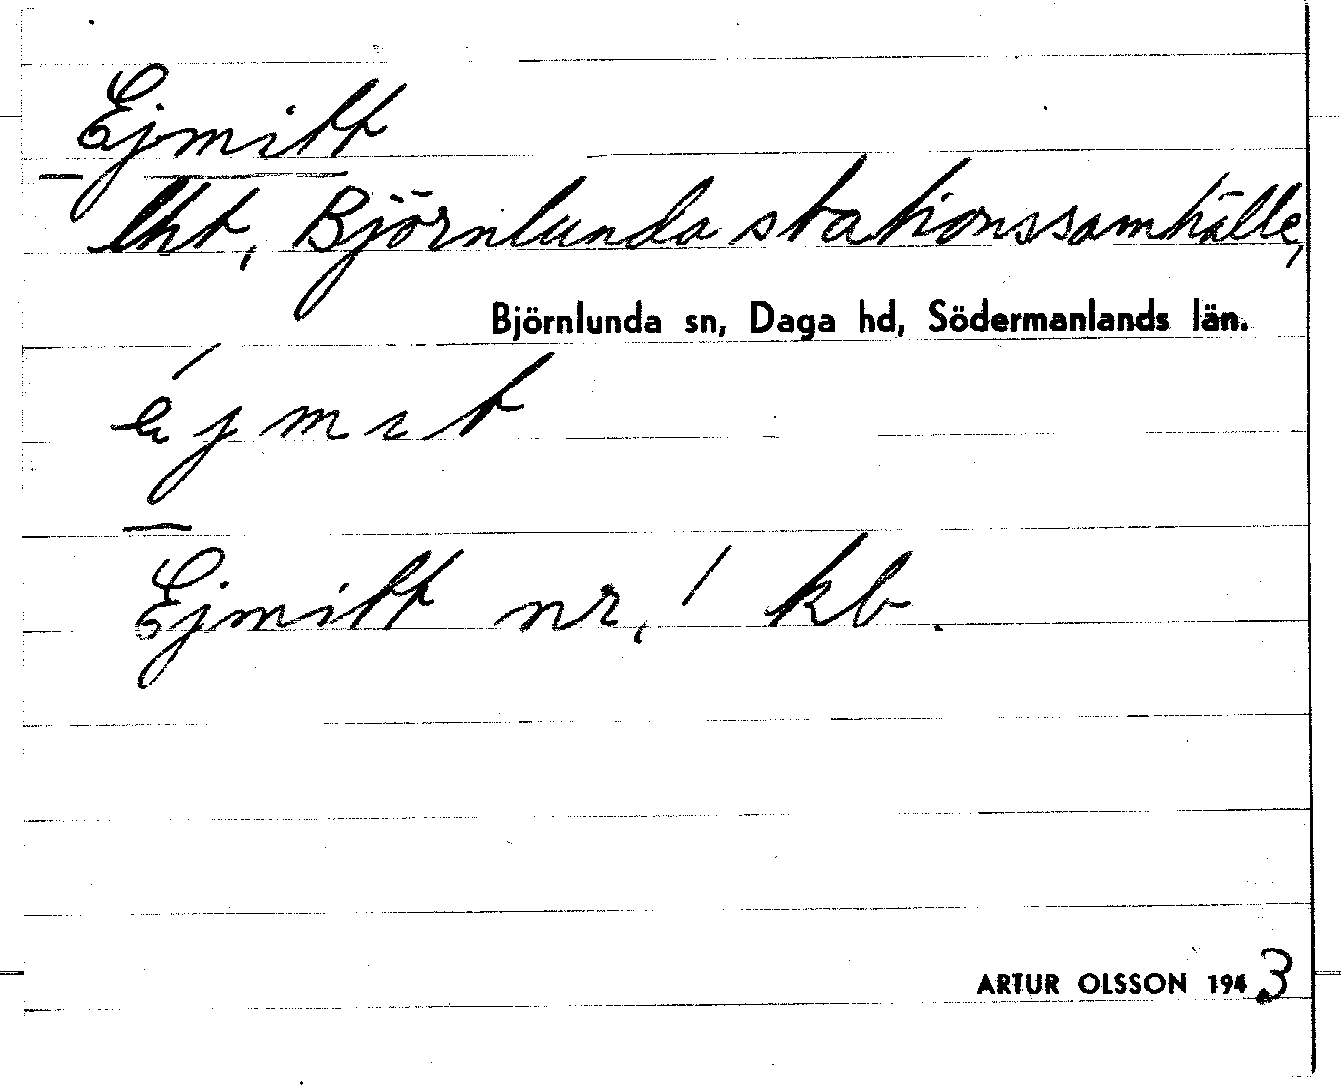 Ejmitt
lht, Björnlunda stationssamhälle,
Björnlunda sn, Daga hd, Södermanlands län.
éjmıt
Ejmitt nr, 1 kb.
ARTUR OLSSON 1943